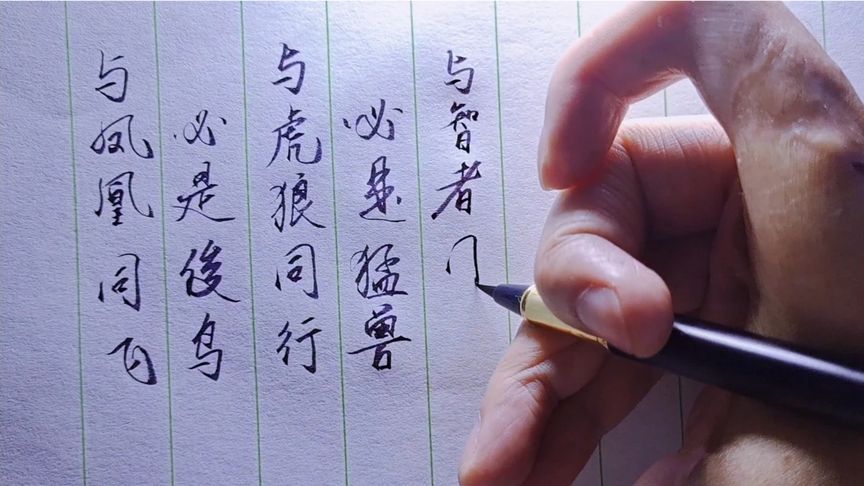 与凤凰同飞
必是俊鸟
与虎狼同行
必是猛兽
与智者